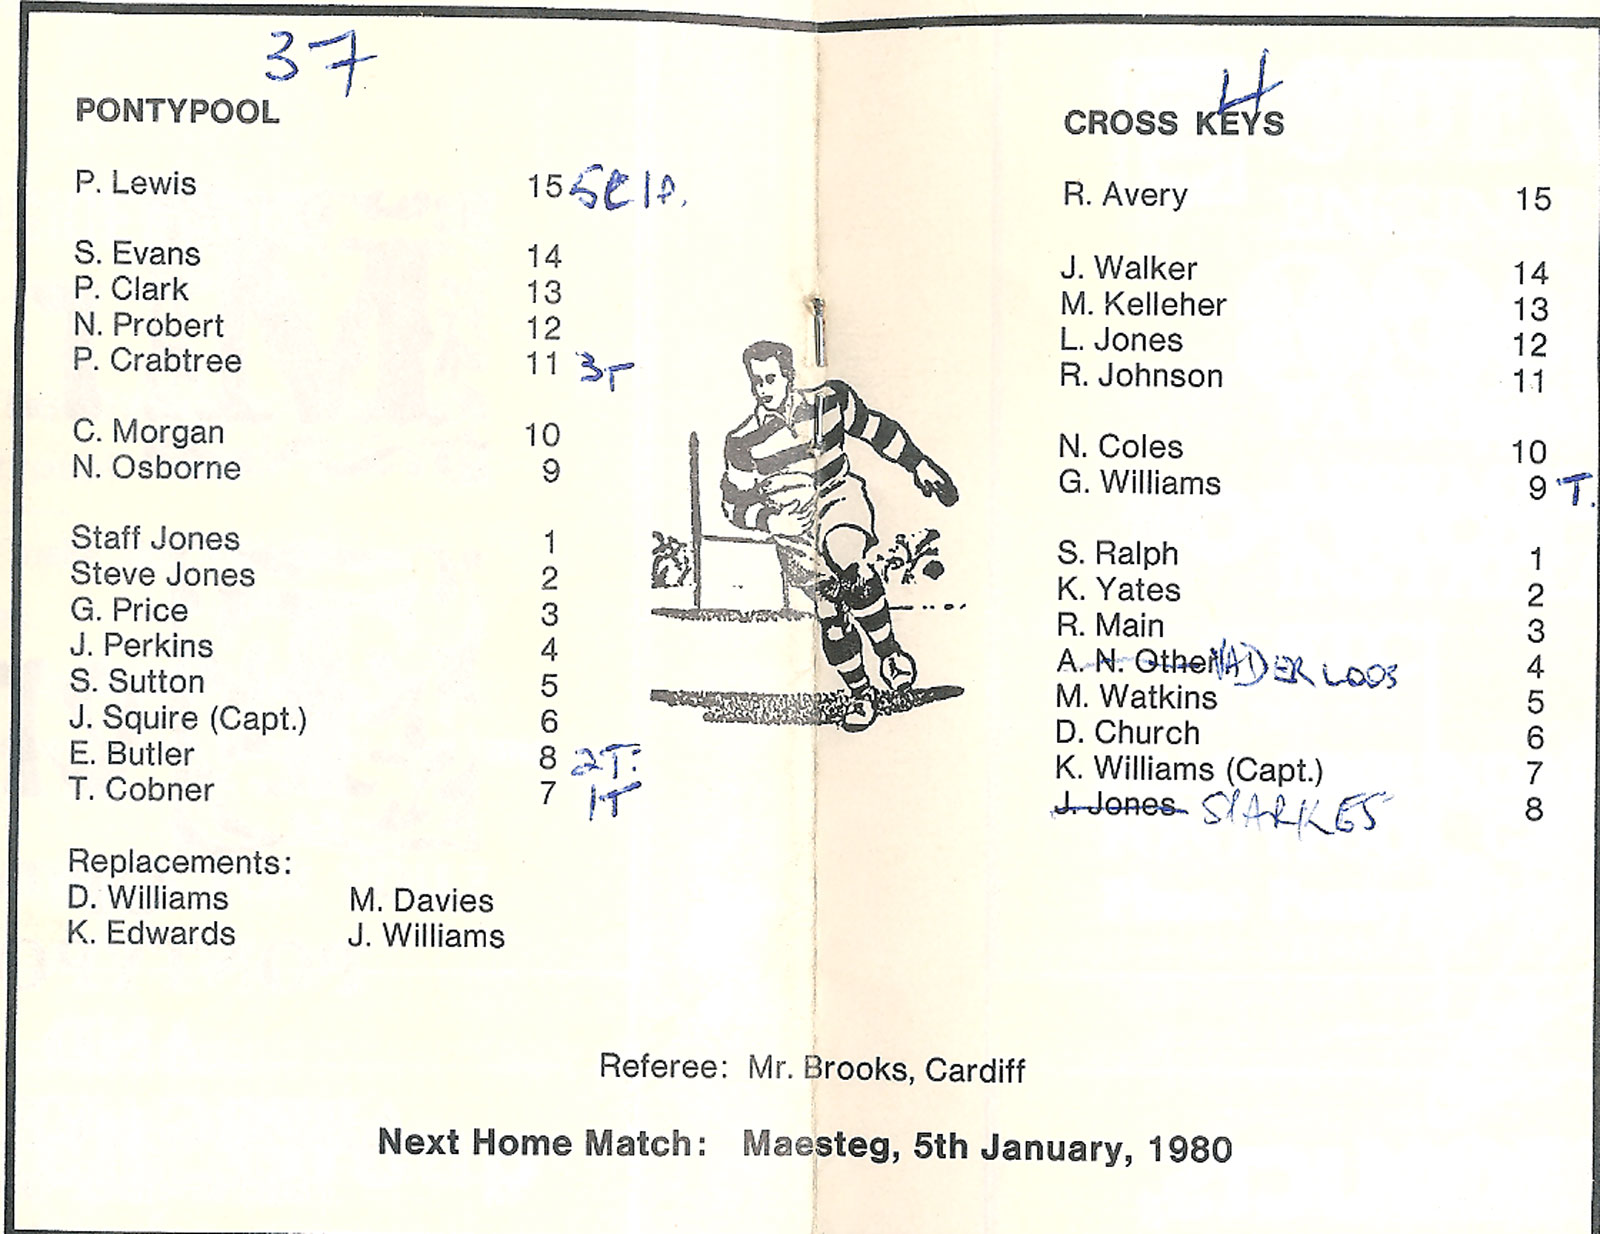 37
PONTYPOOL
P. Lewis 15 5C 1P.
S. Evans 14
P. Clark 13
N. Probert 12
P. Crabtree 11 3T
C. Morgan 10
N. Osborne 9
Staff Jones 1
Steve Jones 2
G. Price 3
J. Perkins 4
S. Sutton 5
J. Squire (Capt.) 6
E. Butler 8 2T.
T. Cobner 7 1T
Replacements:
D. Williams M. Davies
K. Edwards J. Williams
4
CROSS KEYS
R. Avery 15
J. Walker 14
M. Kelleher 13
L. Jones 12
R. Johnson 11
N. Coles 10
G. Williams 9 T.
S. Ralph 1
K. Yates 2
R. Main 3
A. N. Other 4
M. Watkins 5
D. Church 6
K. Williams (Capt.) 7
J. Jones SPARKES 8
Referee: Mr. Brooks, Cardiff
Next Home Match: Maesteg, 5th January, 1980